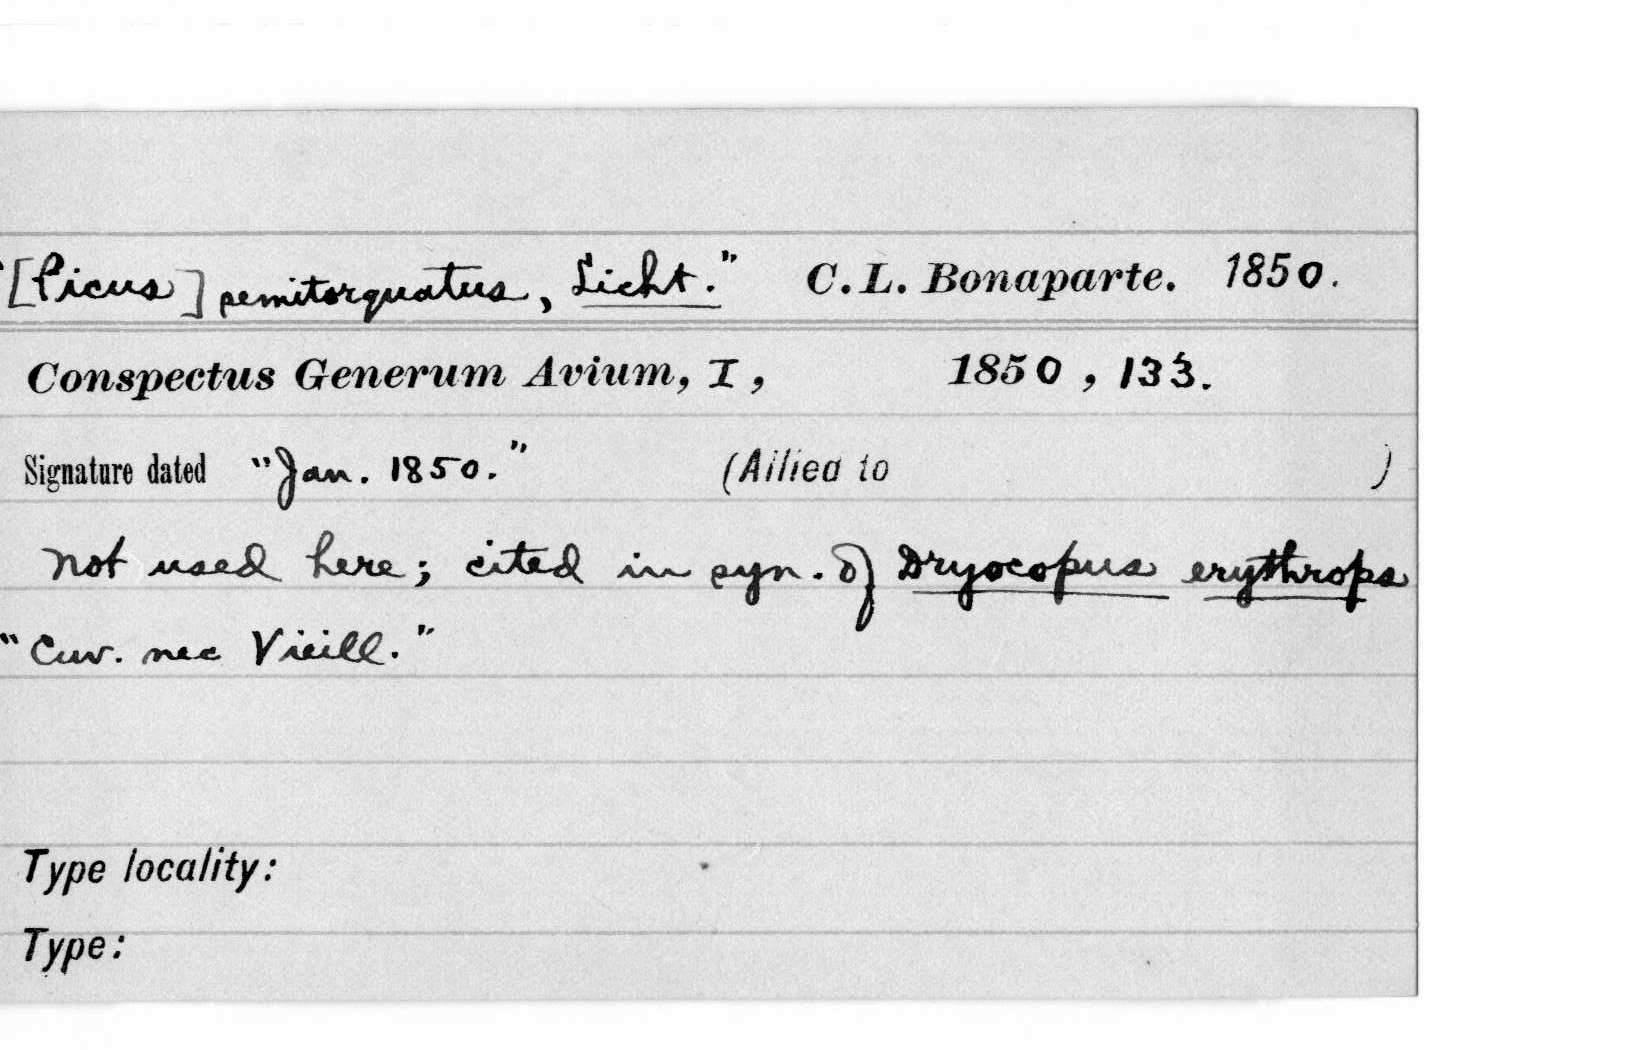 "[Picus] semitorquatus, Licht." C.L. Bonaparte. 1850.
Conspectus Generum Avium, I, 1850, 133.
Signature dated "Jan. 1850." (Allied to )
not used here; cited in syn. of Dryocopus erythrops
"Cuv. nec Vieill."
Type locality:
Type: